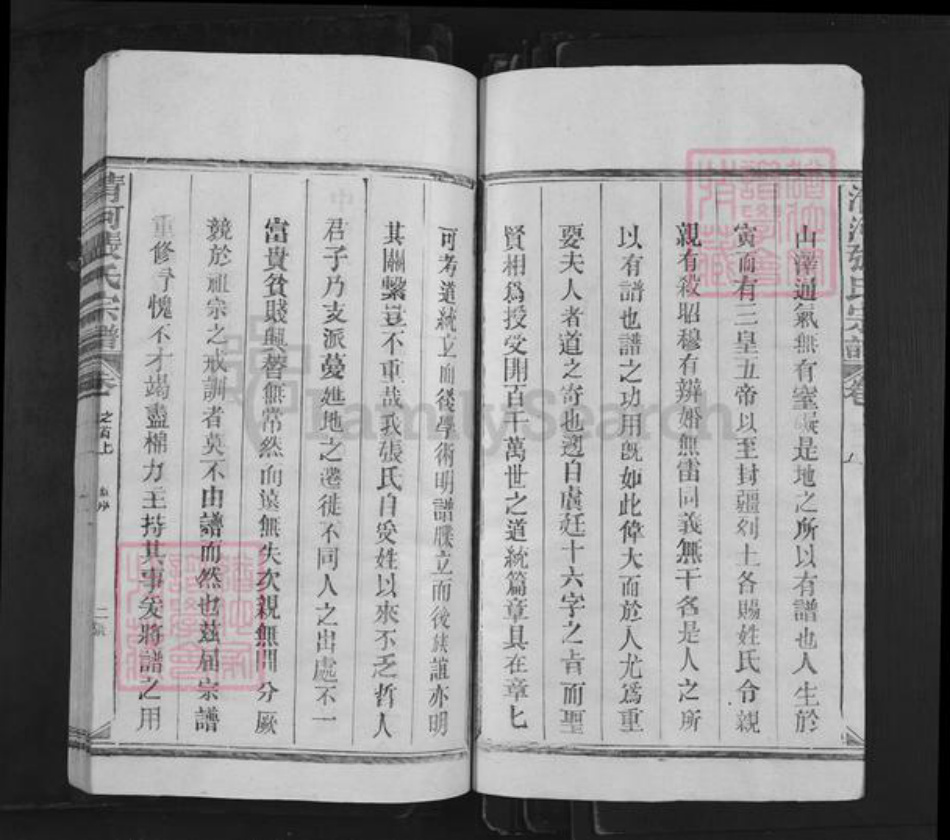 山澤通氣無有窒礙是地之所以有譜也人生於
寅而有三皇五帝以至封疆列土各賜姓氏令親
親有殺昭穆有辨婚無雷同義無干名是人之所
以有譜也譜之功用旣如此偉大而於人尤爲重
要夫人者道之寄也遡自虞廷十六字之旨而聖
賢相爲授受開百千萬世之道統篇章具在章七
可考道統立而後學術明譜牒立而後族誼亦明
其關繫豈不重哉我張氏自受姓以來不乏哲人
君子乃支派蔓延地之遷徙不同人之出處不一
富貴貧賤興替無常然而遠無失次親無間分厥
競於祖宗之戒訓者莫不由譜而然也茲屆宗譜
重修予愧不才竭盡棉力主持其事爰將譜之用
清河張氏宗譜
卷
之首上
二
清河張氏宗譜
卷
FamilySearch